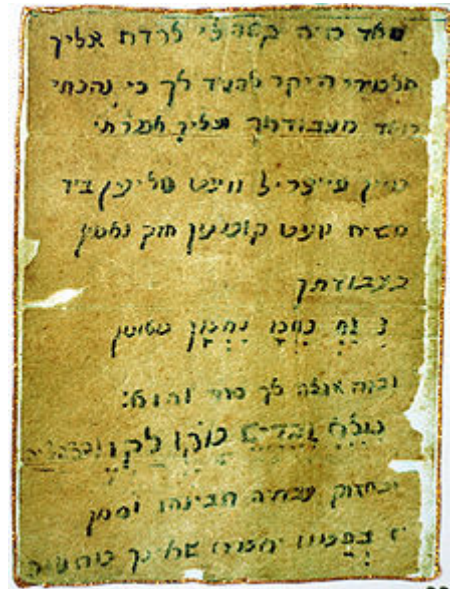 מאד היה קשה לי לרדת אליך
תלמידי היקר להגיד לך כי נהנתי
מאד מעבודתך ועליך אמרתי
מיין פייערל וועט טליען ביז
משיח וועט קומען חזק ואמץ
בעבודתך
נ נַחְ נַחְמָ נַחְמָן מאומן
ובזה אגלה לך סוד והוא:
מָלֵא וְגָדִישׁ מִקַּו לְקַו
ובחזוק עבודה תבינהו וסימן
יז בְּתַמּוּז יאמרו שאינך מתענה